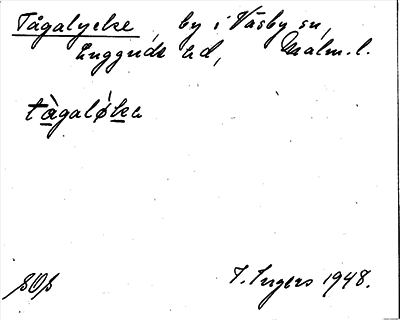 Tågalycke, by i Väsby sn,
Luggude hd, Malm. l.
tågaløke
SOs
I. Ingers 1948.